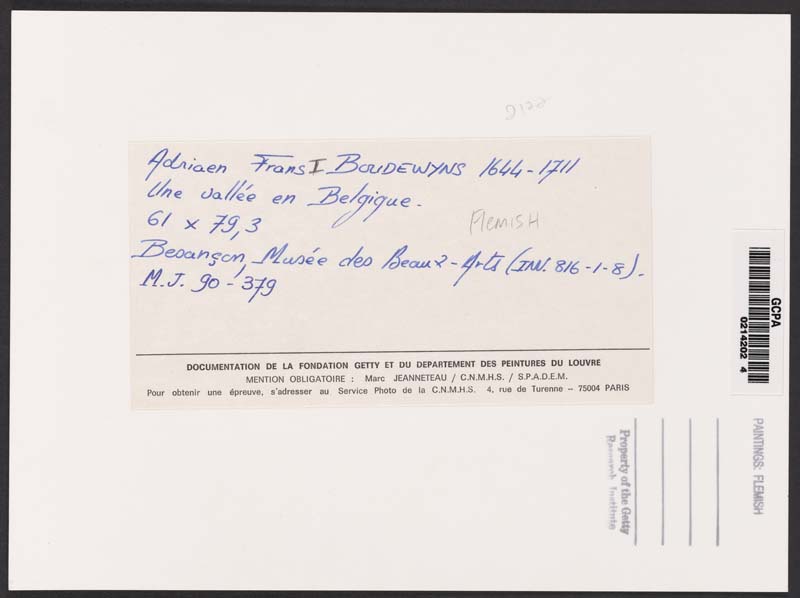 Adriaen Frans I BOUDEWYNS 1644-1711
Une vallée en Belgique.
61 x 79,3
Flemish
Besançon, Musée des Beaux-Arts (INV. 816-1-8).
M.J. 90-379
DOCUMENTATION DE LA FONDATION GETTY ET DU DEPARTEMENT DES PEINTURES DU LOUVRE
MENTION OBLIGATOIRE : Marc JEANNETEAU / C.N.M.H.S. / S.P.A.D.E.M.
Pour obtenir une épreuve, s'adresser au Service Photo de la C.N.M.H.S. 4, rue de Turenne – 75004 PARIS
GCPA
0214202 4
Property of the Getty
Research Institute
PAINTINGS: FLEMISH